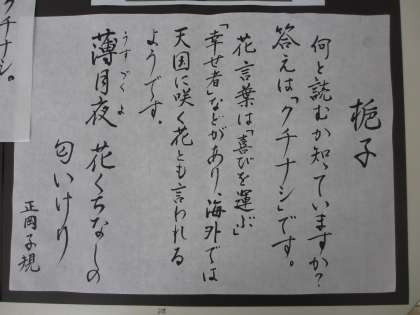 梔子
何と読むか知っていますか？
答えは「クチナシ」です。
花言葉は「喜びを運ぶ」
「幸せ者」などがあり、海外では
天国に咲く花とも言われる
ようです。
うすづくよ
薄月夜 花くちなしの
匂いけり
正岡子規
シ。